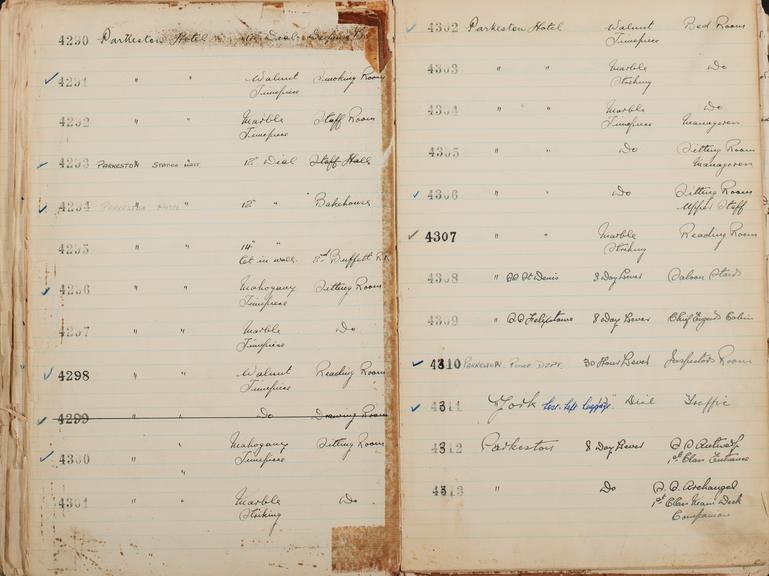 4290 Parkeston Hotel 12" Dial
4291 " " Walnut Smoking Room
Timepiece
4292 " " Marble Staff Room
Timepiece
4293 PARKESTON STATION WEST. 12" Dial Staff Hall
4294 PARKESTON HOTEL " 12" " Bakehouse
4295 " " 14" "
Let in wall. Buffett
4296 " " Mahogany Sitting Room
Timepiece
4297 " " Marble Do
Timepiece
4298 " " Walnut Reading Room
Timepiece
4299 " " Do Drawing Room
4300 " " Mahogany Sitting Room
Timepiece
4301 " " Marble Do
Striking
4302 Parkeston Hotel Walnut Bed Room
Timepiece
4303 " " Marble Do
Striking
4304 " " Marble Do
Timepiece Manageress
4305 " " Do Sitting Room
Manageress
4306 " " Do Sitting Room
Upper Staff
4307 " " Marble Reading Room
Striking
4308 " SS St Denis 8 Day Lever Saloon Stairs
4309 " SS Felixstowe 8 Day Lever Chief Engineers Cabin
4310 PARKESTON. POLICE DEPT. 30 Hour Lever Inspectors Room
4311 York Left luggage Dial Traffic
4312 Parkeston 8 Day Lever S.S Antwerp
1st Class Entrance
4313 " Do S.S. Archangel
1st Class Main Deck
Companion